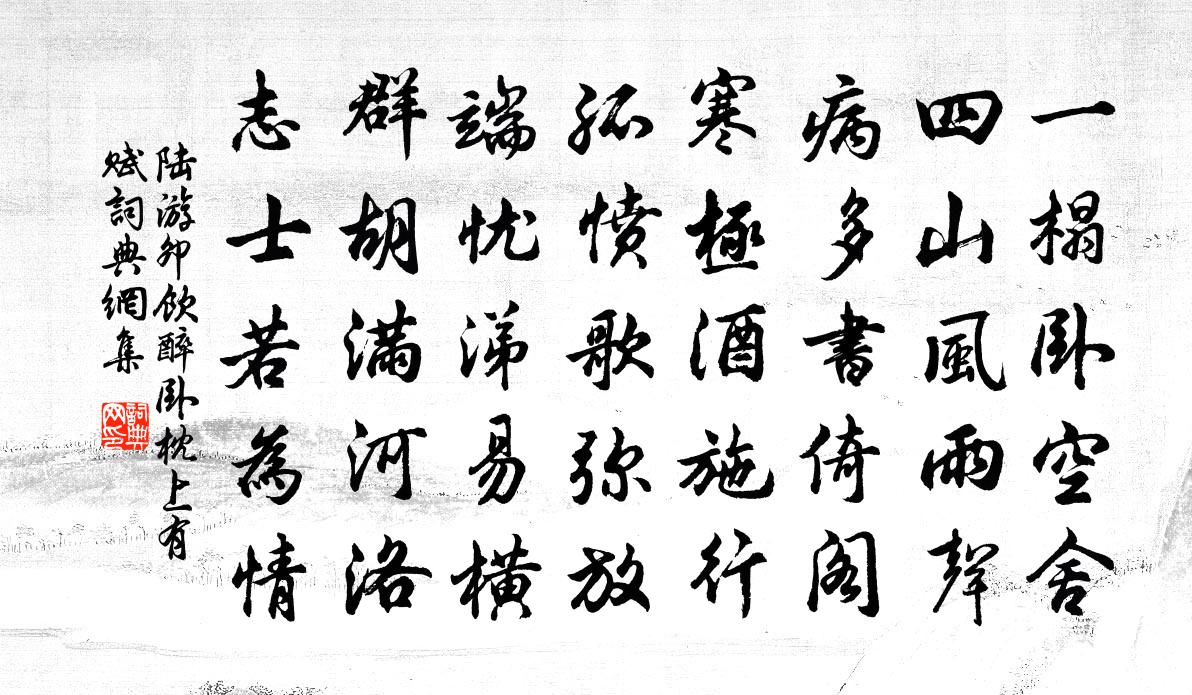 一榻卧空舍
四山風雨聲
病多書倚閣
寒極酒施行
孤愤歌弥放
端忧涕易横
群胡满河洛
志士若為情
陆游卯飲醉卧枕上有
赋詞典網集
詞典
网印